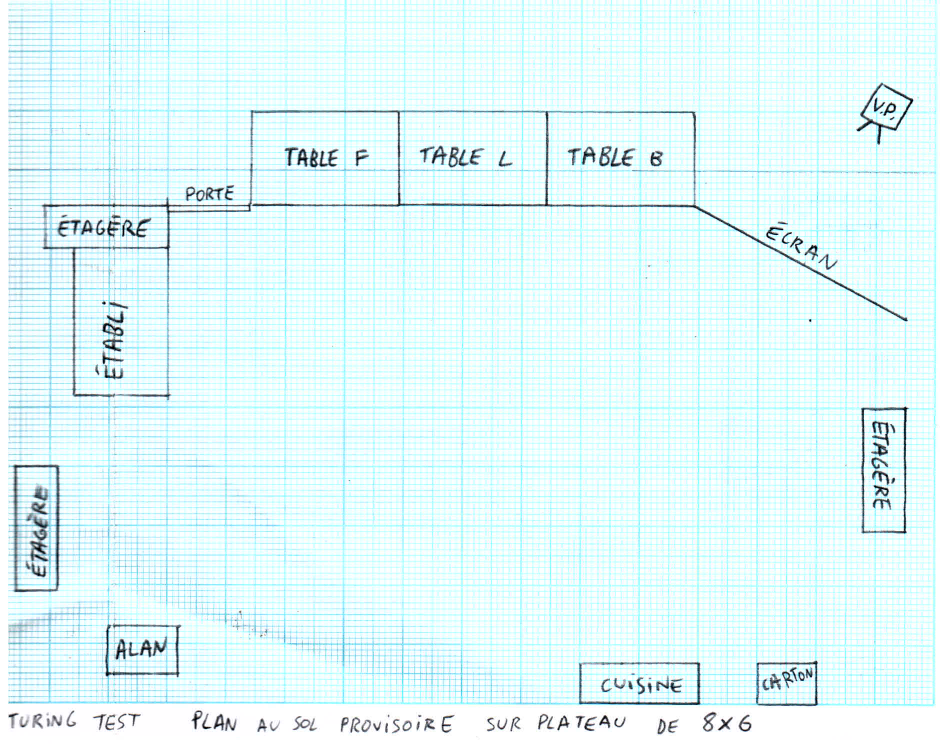 V.P.
TABLE F
TABLE L
TABLE B
PORTE
ÉTAGÈRE
ÉCRAN
ÉTABLI
ÉTAGÈRE
ÉTAGÈRE
ALAN
CUISINE
CARTON
TURING TEST PLAN AU SOL PROVISOIRE SUR PLATEAU DE 8X6